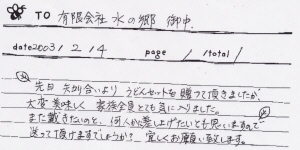 TO 有限会社 水の郷 御中.
date2003 / 2 / 4 page / /total/
先日 知り合いより うどんセットを 贈って頂きましたが、
大変美味しく 家族全員とても気に入りました。
また戴きたいのと、何人かに差し上げたいとも思いますので
送って頂けますでしょうか? 宜しくお願い致します。